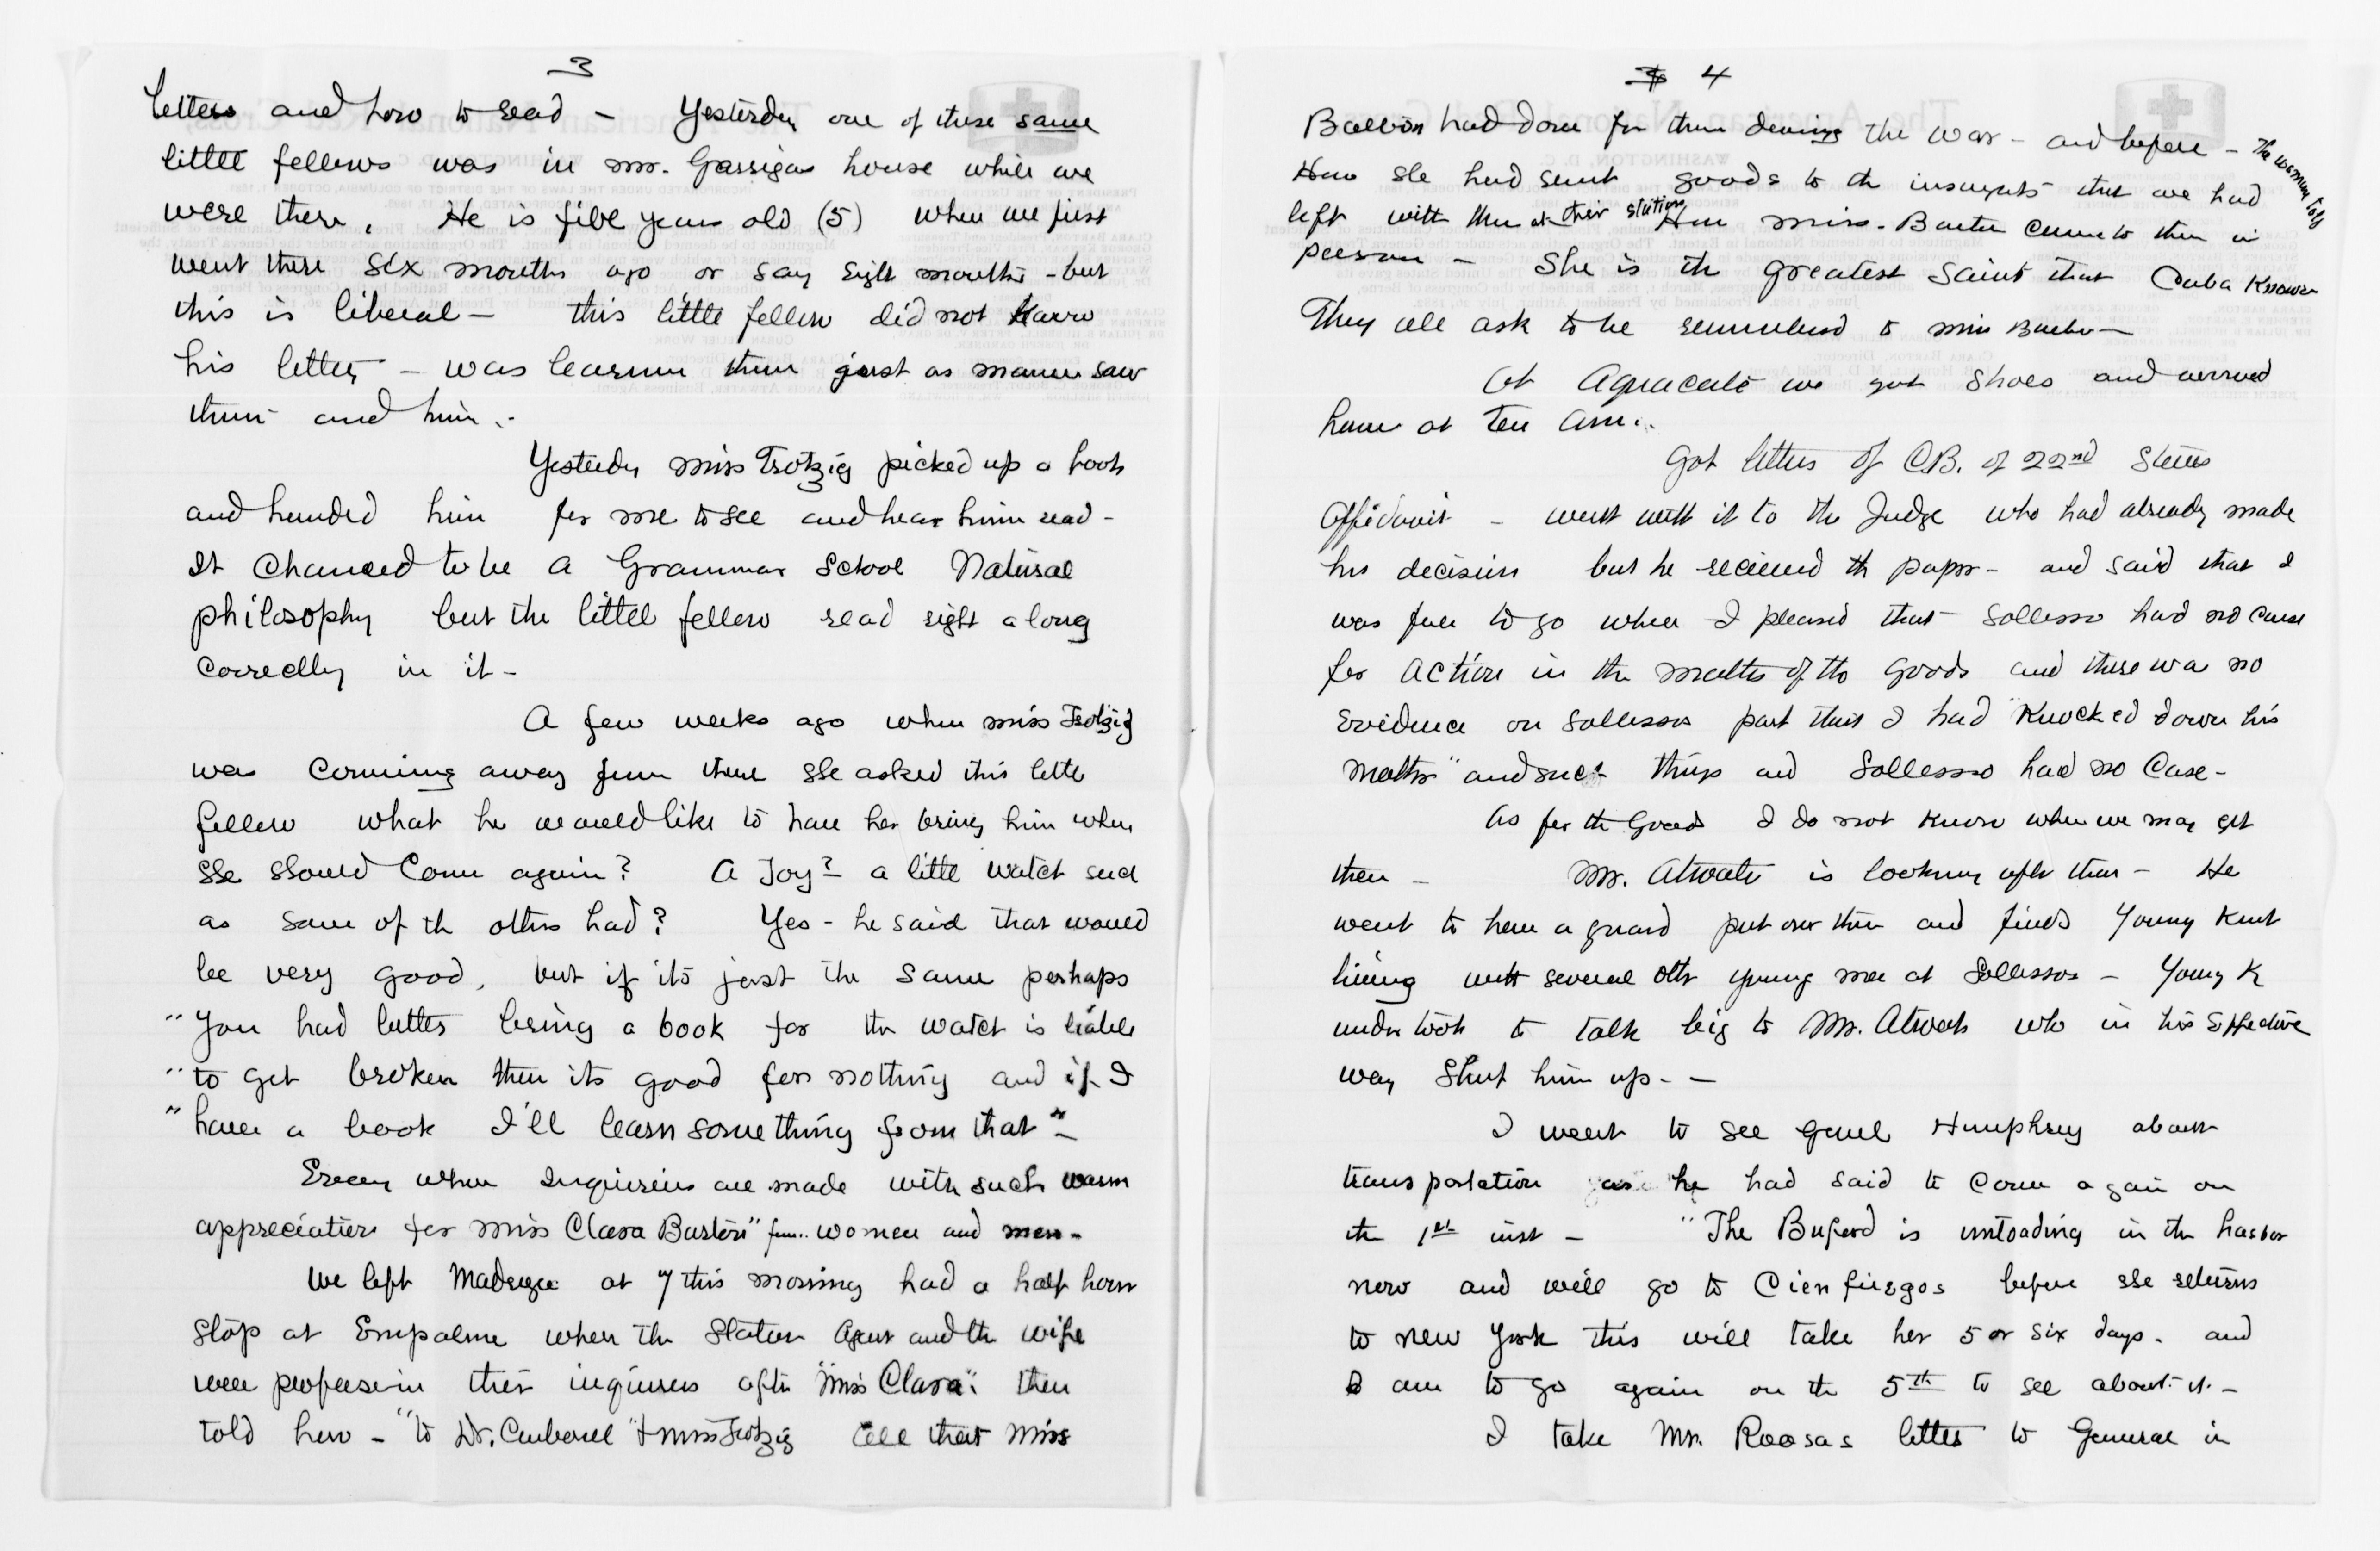 3
letters and how to read - Yesterday one of these same
little fellows was in Mr. Garrigas house while we
were there. He is five years old (5) when we first
went there six months ago or say eight months - but
this is liberal - this little fellow did not know
his letters - was learning them just as mamie saw
them and him.
Yesterday Miss Trotzig picked up a book
and handed him for me to see and hear him read -
It chanced to be a Grammar School Natural
philosophy but the little fellow read right along
correctly in it -
A few weeks ago when Miss Trotzig
was comming away from there she asked this little
fellow what he would like to have her bring him when
she should come again? A Toy? a little watch such
as some of the others had? Yes - he said that would
be very good, but if its just the same perhaps
"You had better bring a book for the watch is liable
"to get broken then its good for nothing and if I
"have a book I'll learn something from that" -
Every where Inquiries are made with such warm
appreciation for Miss Clara Barton" from women and men -
We left Madruga at 7 this morning had a half hour
stop at Empalme where the Station Agent and the wife
were profuse in their inquiries after "Miss Clara": then
told how - "to Dr. Carbonell & Miss Trotzig all that Miss
4
Barton had done for them during the war - and before - The woman told
How she had sent goods to the insurgents that we had
left with them at their station How Miss. Barton came to them in
person - She is the greatest saint that Cuba knows
They all ask to be remembered to Miss Barton -
At Aguacate we got shoes and arrived
home at ten am.
Got letters of C.B. of 22nd
Affidavit - went with it to the Judge who had already made
his decision but he received the paper - and said that I
was free to go when I pleased that Sollosso had no cause
for action in the matter of the goods and there was no
evidence on Sollosso part that I had "Knocked down his
" and such things and Sollosso had no Case -
As for the Goods I do not know when we may get
them - Mr. Atwater is looking after them - He
went to have a guard put over them and finds Young Kent
living with several other young men at Sollossos - Young K
undertook to talk big to Mr. Atwater who in his Effective
way Shut him up. -
I went to see Genl Humphrey about
transportation as he had said to come again on
the 1st inst - "The Buford is unloading in the harbor
now and will go to Cienfuegos before she returns
to New York this will take her 5 or six days. and
I am to go again on the 5th to see about it. -
I take Mr. Roosas letter to General in